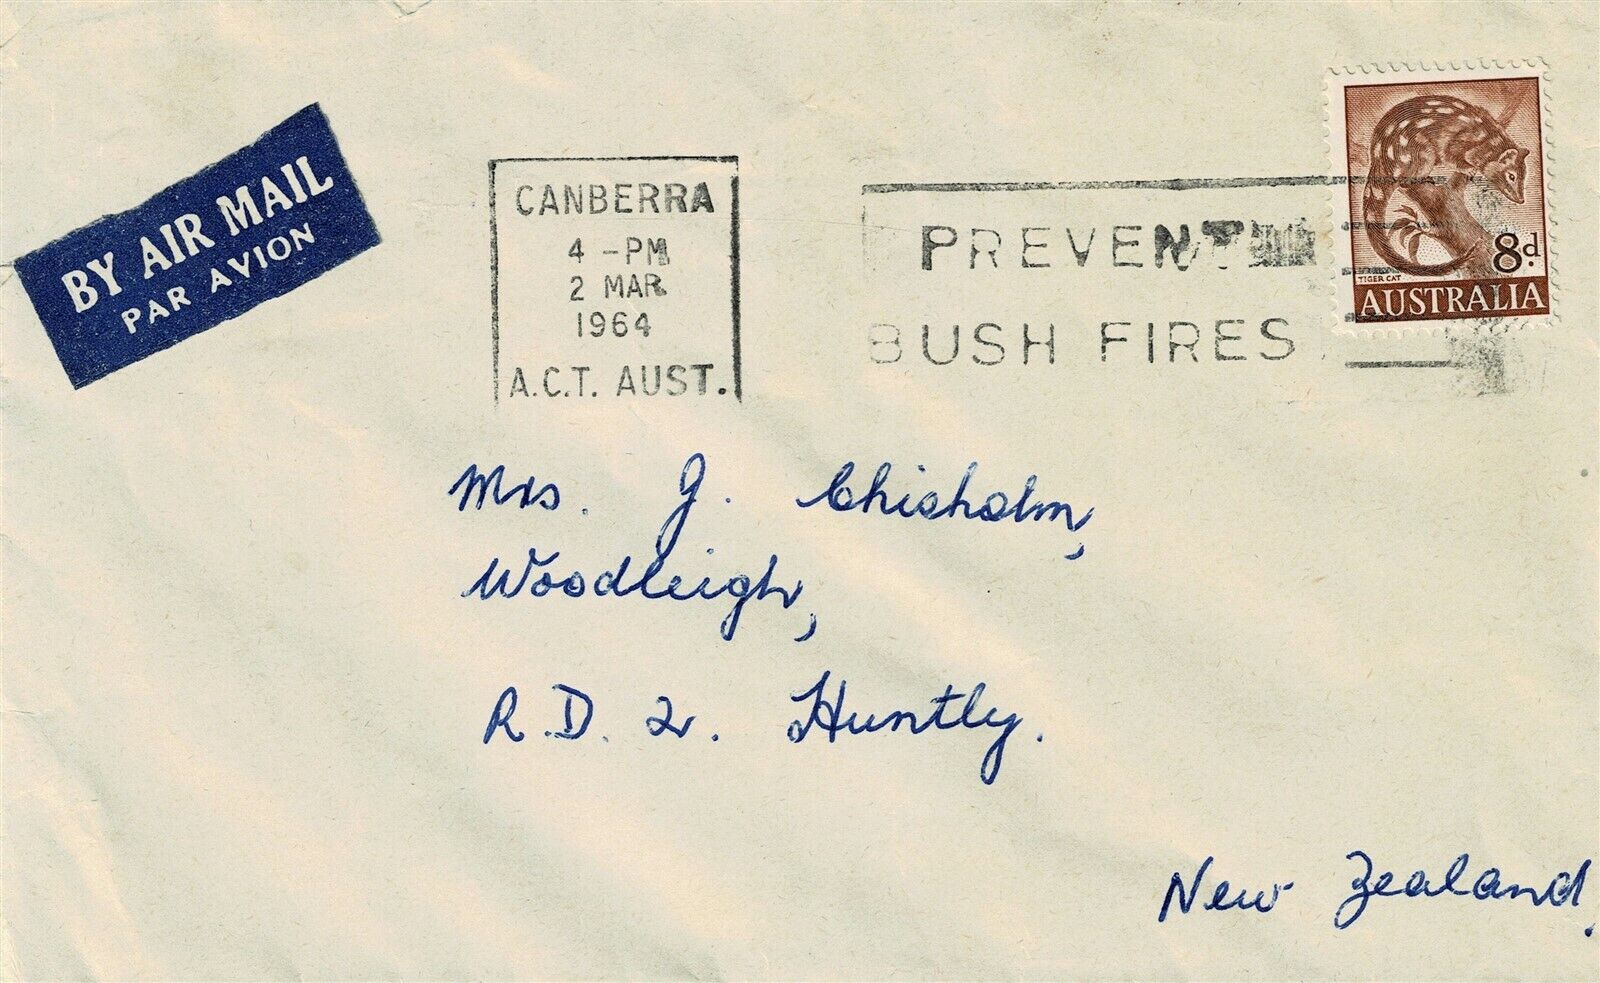 BY AIR MAIL
PAR AVION
CANBERRA
4 -PM
2 MAR
1964
A.C.T. AUST.
PREVENT
BUSH FIRES
8d.
TIGER CAT
AUSTRALIA
Mrs. J. Chisholm,
Woodleigh,
R.D. 2. Huntly.
New Zealand.